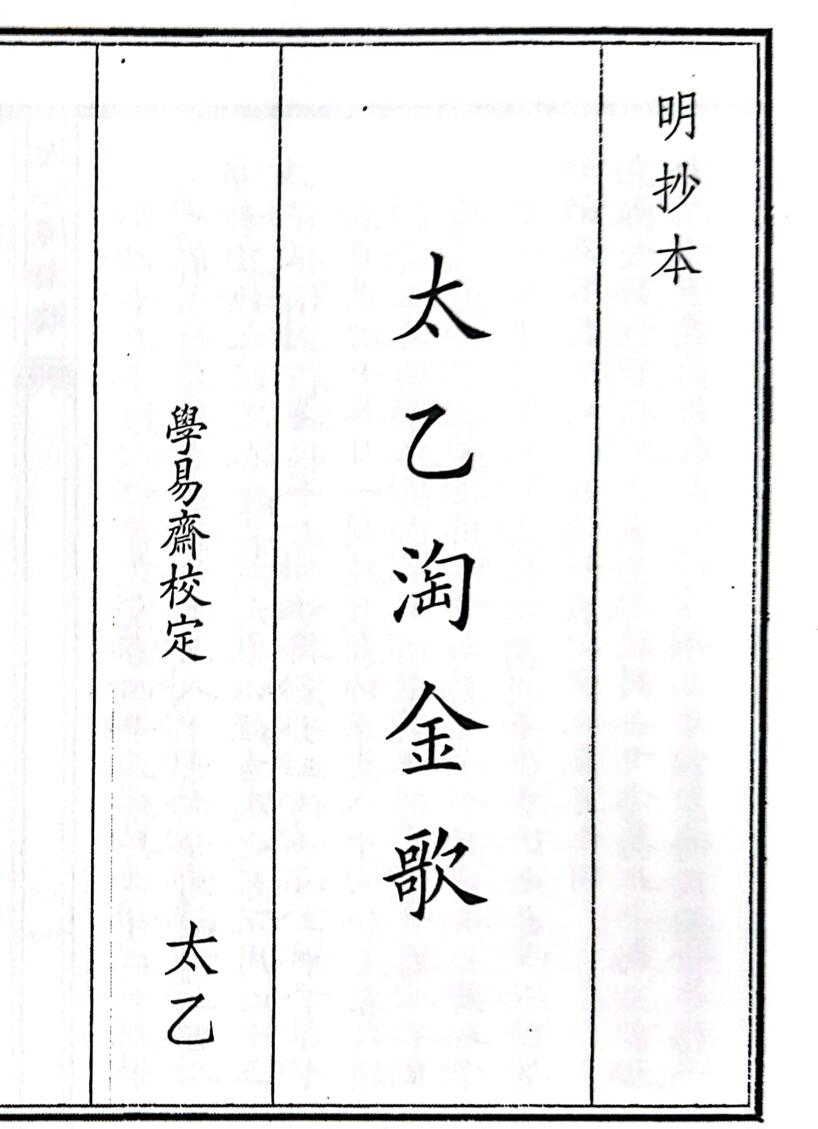 明抄本
太乙淘金歌
學易齋校定
太乙